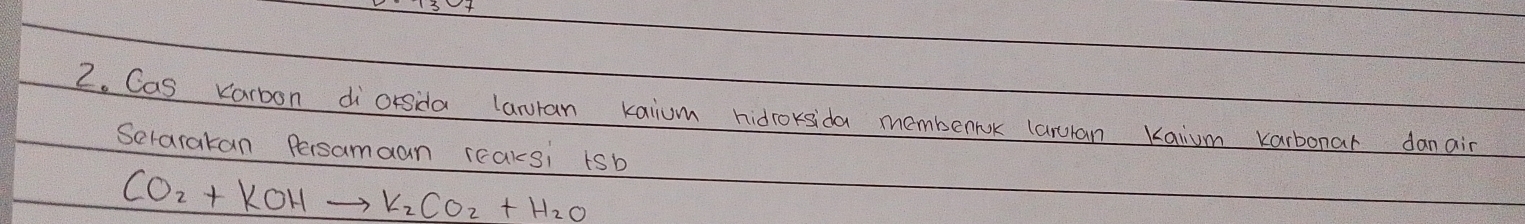 2. Gas karbon di oksida larutan kalium hidroksida membentuk larutan kalium karbonat dan air
Setarakan Persamaan reaksi tsb
CO₂ + KOH → K₂CO₂ + H₂O